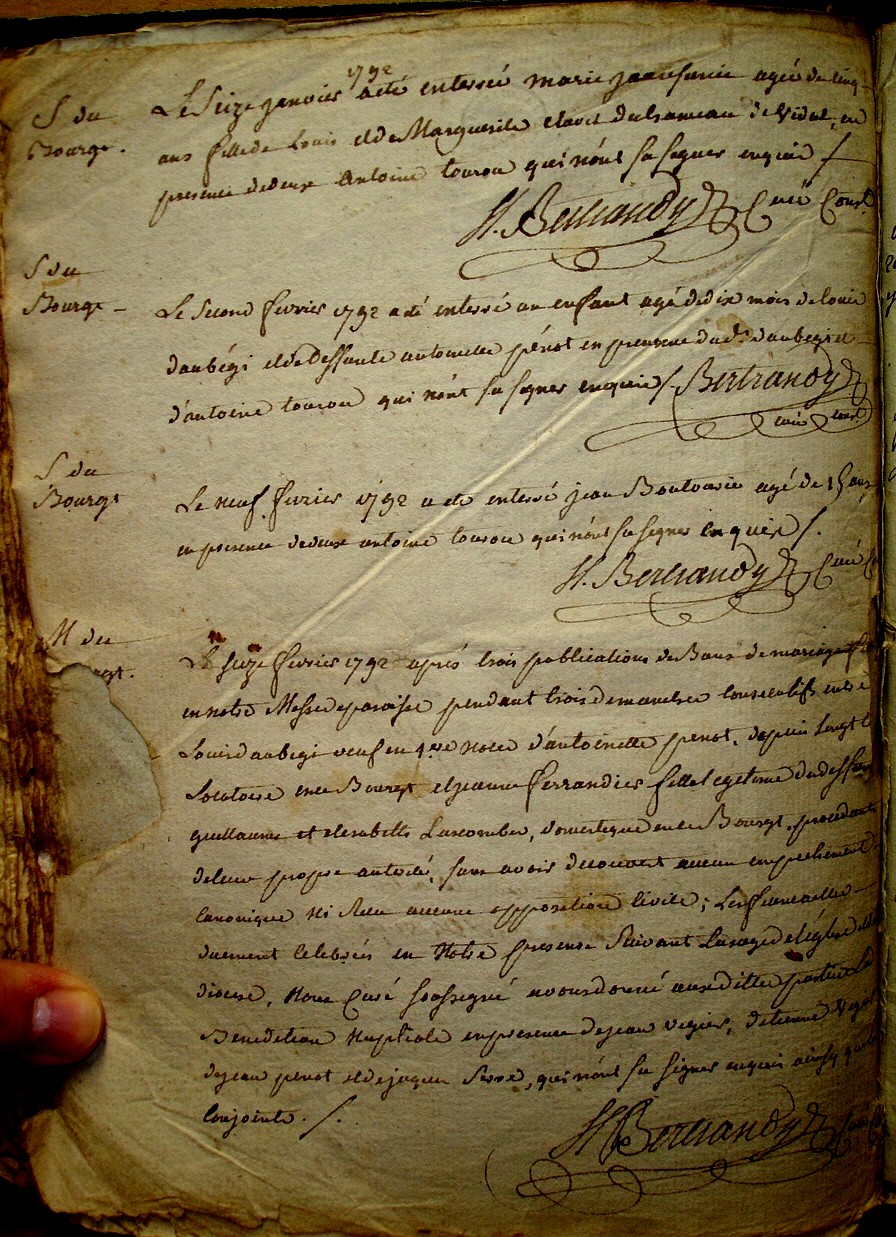 1792
S du
Bourgt.
Le Seize janvier a été enterrée marie agée de cinq
ans fille de Louis et de Marguerite du hameau de Vidal, en
presence de deux Antoine tourou qui n'ont su signer enquis /.
H. Bertrandy Curé Const.
S du
Bourgt
Le Second fevrier 1792 a eté enterré un enfant agé de dix mois de louis
daubégi et de deffunte antoinette pénot en presence dud. daubegi et
d'antoine tourou qui n'ont su signer enquis /. Bertrandy
curé const
S du
Bourgt
Le neuf fevrier 1792 a eté enterré jean agé de 15 ans
en presence de deux antoine tourou qui n'ont su signer enquis /.
H. Bertrandy Curé
M du
Le seize fevrier 1792 aprés trois publications de Bans de mariage
en notre Messe de paroisse pendant trois dimanches consecutifs entre
Louis daubegi veuf en noces d'antoinette penot, depuis longt
Locatoire en ce Bourgt et jeanne ferrandier fille legitime du deffunt
guillaume et elisabette Lascombes, domestique en ce Bourgt, procedants
de leur propre autorité, sans avoir decouvert aucun empechement
canonique ni Reçu aucune opposition civile; Les fiancailles
duement celebrées en Notre presence Suivant L'usage de l'église
diocese, Nous Curé soussigné avons donné aux dittes parties La
Benediction Nuptiale en presence de jean vegier, d'etienne
de jean penot et de jaques Serre, qui n'ont su signer enquis ainsy que les
Conjoints. /.
H. Bertrandy curé